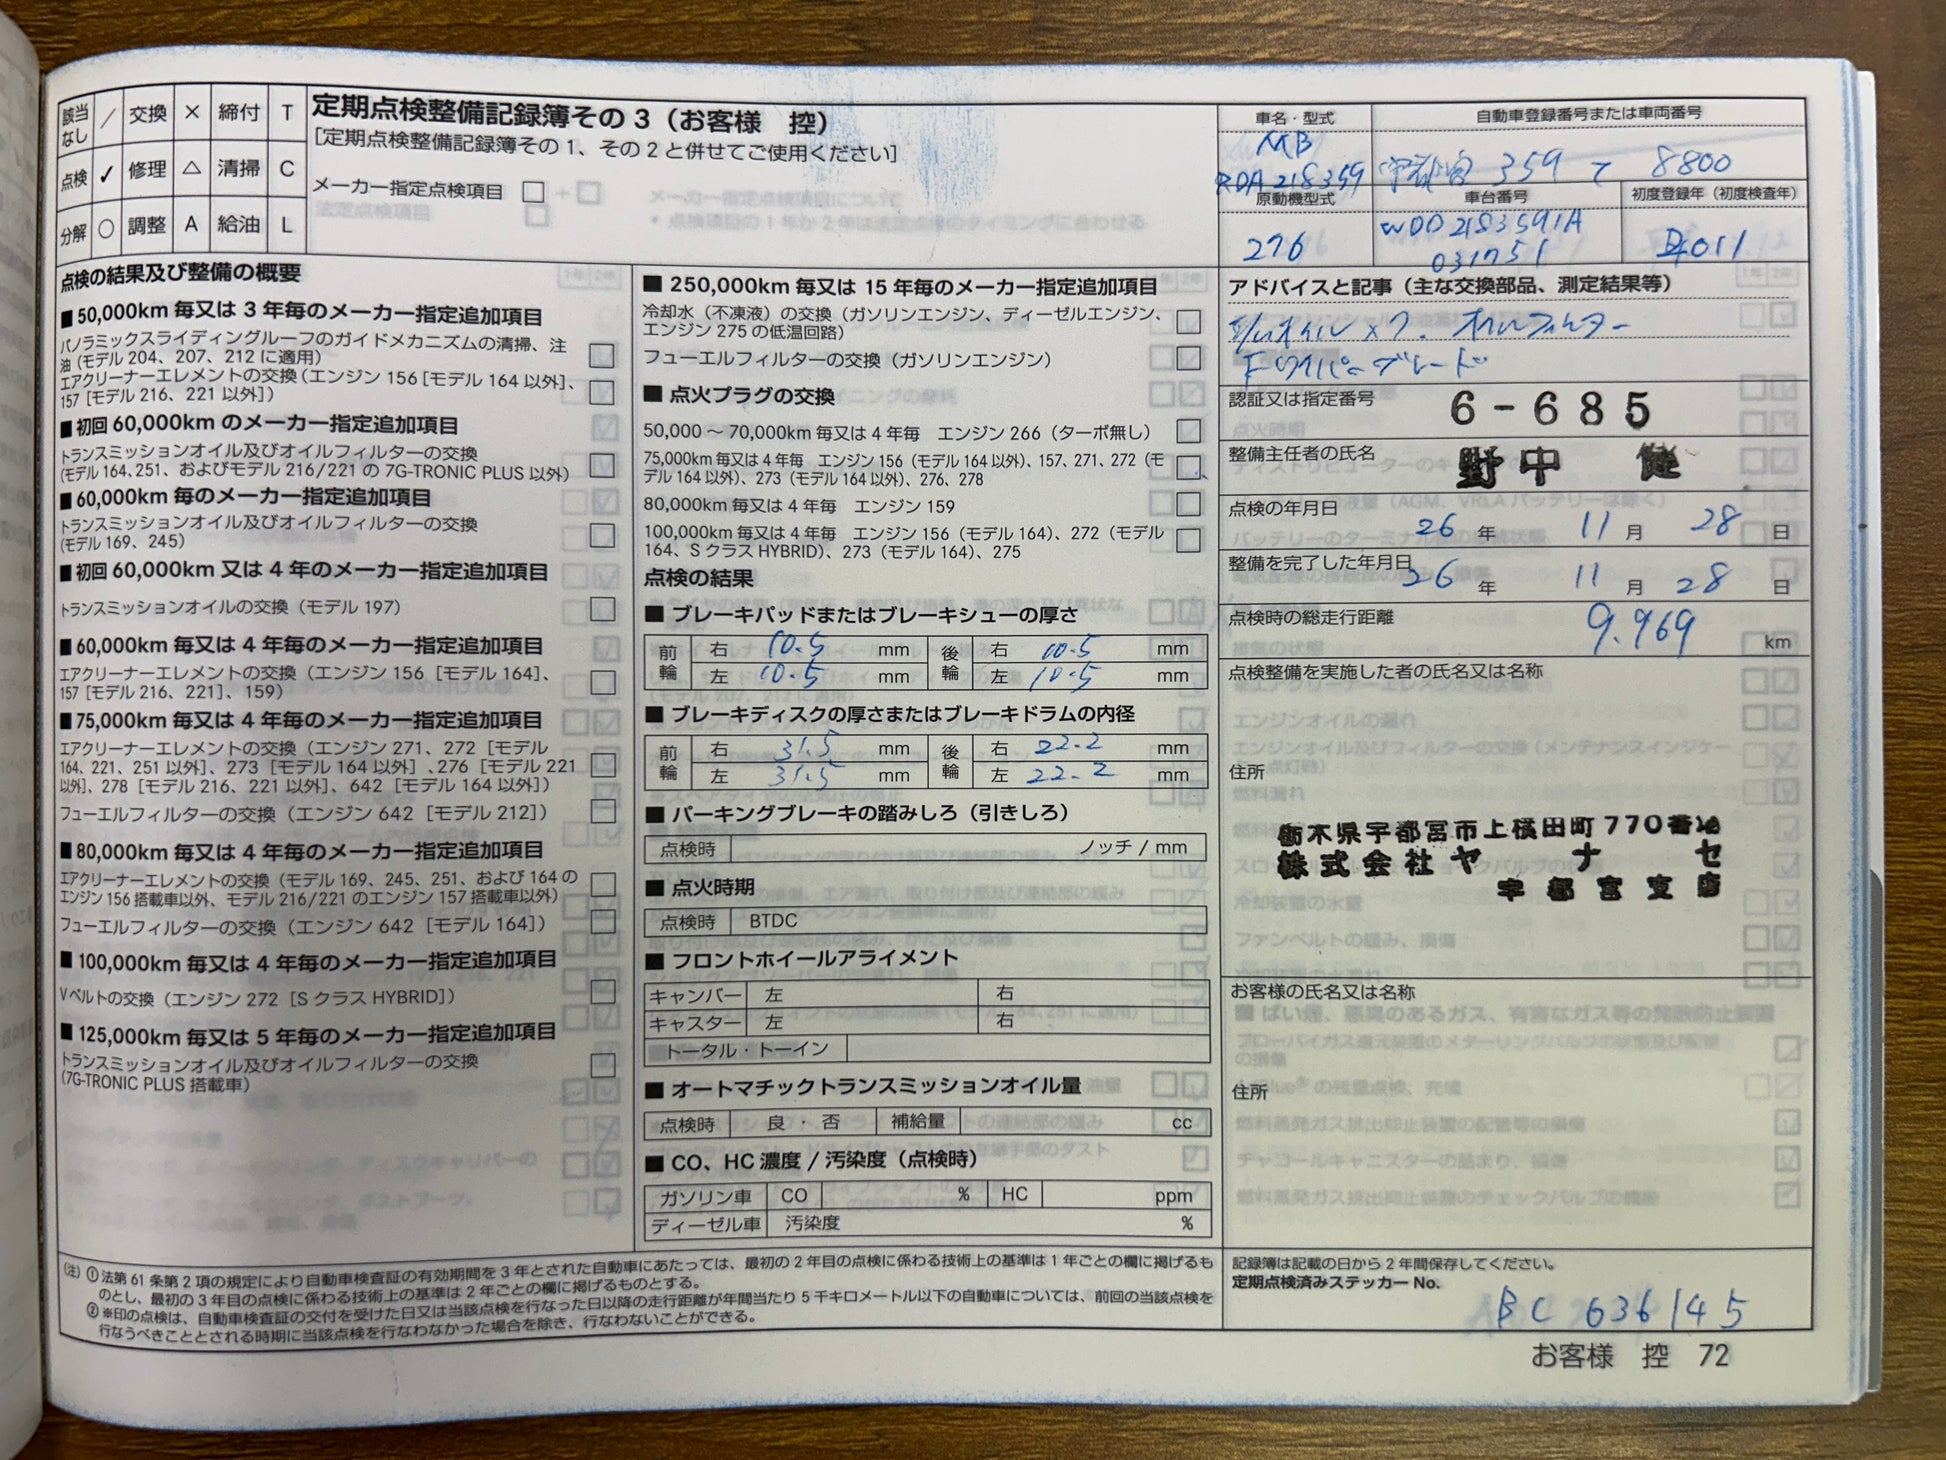 該当なし ／ 交換 × 締付 T
点検 ✓ 修理 △ 清掃 C
分解 ○ 調整 A 給油 L
定期点検整備記録簿その3（お客様　控）
[定期点検整備記録簿その1、その2と併せてご使用ください]
メーカー指定点検項目 □
車名・型式
MB
RDA218359
自動車登録番号または車両番号
宇都宮 359 て 8800
原動機型式
276
車台番号
WDD2183591A
031751
初度登録年（初度検査年）
2011
点検の結果及び整備の概要
■50,000km毎又は3年毎のメーカー指定追加項目
パノラミックスライディングルーフのガイドメカニズムの清掃、注
油（モデル204、207、212に適用） □
エアクリーナーエレメントの交換（エンジン156［モデル164以外］、
157［モデル216、221以外］） □
■初回60,000kmのメーカー指定追加項目
トランスミッションオイル及びオイルフィルターの交換
（モデル164、251、およびモデル216/221の7G-TRONIC PLUS以外） □
■60,000km毎のメーカー指定追加項目
トランスミッションオイル及びオイルフィルターの交換
（モデル169、245） □
■初回60,000km又は4年のメーカー指定追加項目
トランスミッションオイルの交換（モデル197） □
■60,000km毎又は4年毎のメーカー指定追加項目
エアクリーナーエレメントの交換（エンジン156［モデル164］、
157［モデル216、221］、159） □
■75,000km毎又は4年毎のメーカー指定追加項目
エアクリーナーエレメントの交換（エンジン271、272［モデル
164、221、251以外］、273［モデル164以外］、276［モデル221
以外］、278［モデル216、221以外］、642［モデル164以外］） □
フューエルフィルターの交換（エンジン642［モデル212］） □
■80,000km毎又は4年毎のメーカー指定追加項目
エアクリーナーエレメントの交換（モデル169、245、251、および164の
エンジン156搭載車以外、モデル216/221のエンジン157搭載車以外） □
フューエルフィルターの交換（エンジン642［モデル164］） □
■100,000km毎又は4年毎のメーカー指定追加項目
Vベルトの交換（エンジン272［SクラスHYBRID］） □
■125,000km毎又は5年毎のメーカー指定追加項目
トランスミッションオイル及びオイルフィルターの交換
（7G-TRONIC PLUS搭載車） □
■250,000km毎又は15年毎のメーカー指定追加項目
冷却水（不凍液）の交換（ガソリンエンジン、ディーゼルエンジン、
エンジン275の低温回路） □
フューエルフィルターの交換（ガソリンエンジン） □
■点火プラグの交換
50,000～70,000km毎又は4年毎　エンジン266（ターボ無し） □
75,000km毎又は4年毎　エンジン156（モデル164以外）、157、271、272（モ
デル164以外）、273（モデル164以外）、276、278 □
80,000km毎又は4年毎　エンジン159 □
100,000km毎又は4年毎　エンジン156（モデル164）、272（モデル
164、SクラスHYBRID）、273（モデル164）、275 □
点検の結果
■ブレーキパッドまたはブレーキシューの厚さ
前輪 右 10.5 mm 後輪 右 10.5 mm
左 10.5 mm 左 10.5 mm
■ブレーキディスクの厚さまたはブレーキドラムの内径
前輪 右 31.5 mm 後輪 右 22.2 mm
左 31.5 mm 左 22.2 mm
■パーキングブレーキの踏みしろ（引きしろ）
点検時 ノッチ/mm
■点火時期
点検時 BTDC
■フロントホイールアライメント
キャンバー 左 右
キャスター 左 右
トータル・トーイン
■オートマチックトランスミッションオイル量
点検時 良・否 補給量 cc
■CO、HC濃度/汚染度（点検時）
ガソリン車 CO % HC ppm
ディーゼル車 汚染度 %
アドバイスと記事（主な交換部品、測定結果等）
オイルフィルター
Fワイパーブレード
認証又は指定番号 6-685
整備主任者の氏名 野中 健
点検の年月日 26年 11月 28日
整備を完了した年月日 26年 11月 28日
点検時の総走行距離 9.969 km
点検整備を実施した者の氏名又は名称
住所
栃木県宇都宮市上横田町770番地
株式会社ヤナセ
宇都宮支店
お客様の氏名又は名称
住所
（注）①法第61条第2項の規定により自動車検査証の有効期間を3年とされた自動車にあたっては、最初の2年目の点検に係わる技術上の基準は1年ごとの欄に掲げるも
のとし、最初の3年目の点検に係わる技術上の基準は2年ごとの欄に掲げるものとする。
②※印の点検は、自動車検査証の交付を受けた日又は当該点検を行なった日以降の走行距離が年間当たり5千キロメートル以下の自動車については、前回の当該点検を
行なうべきこととされる時期に当該点検を行なわなかった場合を除き、行なわないことができる。
記録簿は記載の日から2年間保存してください。
定期点検済みステッカーNo.
BC 636145
お客様　控　72